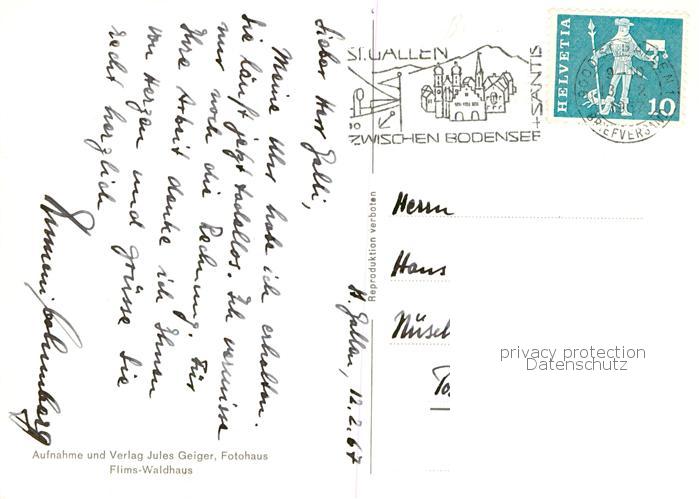 St. Gallen, 12.2.67
Lieber Herr Galli,
Meine Uhr habe ich erhalten.
Sie läuft jetzt tadellos. Ich vermisse
nur noch die Rechnung. Für
Ihre Arbeit danke ich Ihnen
von Herzen und grüsse Sie
recht herzlich
ST. GALLEN
ZWISCHEN BODENSEE
+ SÄNTIS
HELVETIA
10
BRIEFVERSAND
Herrn
Hans
Nüsch
To
Reproduktion verboten
privacy protection
Datenschutz
Aufnahme und Verlag Jules Geiger, Fotohaus
Flims-Waldhaus